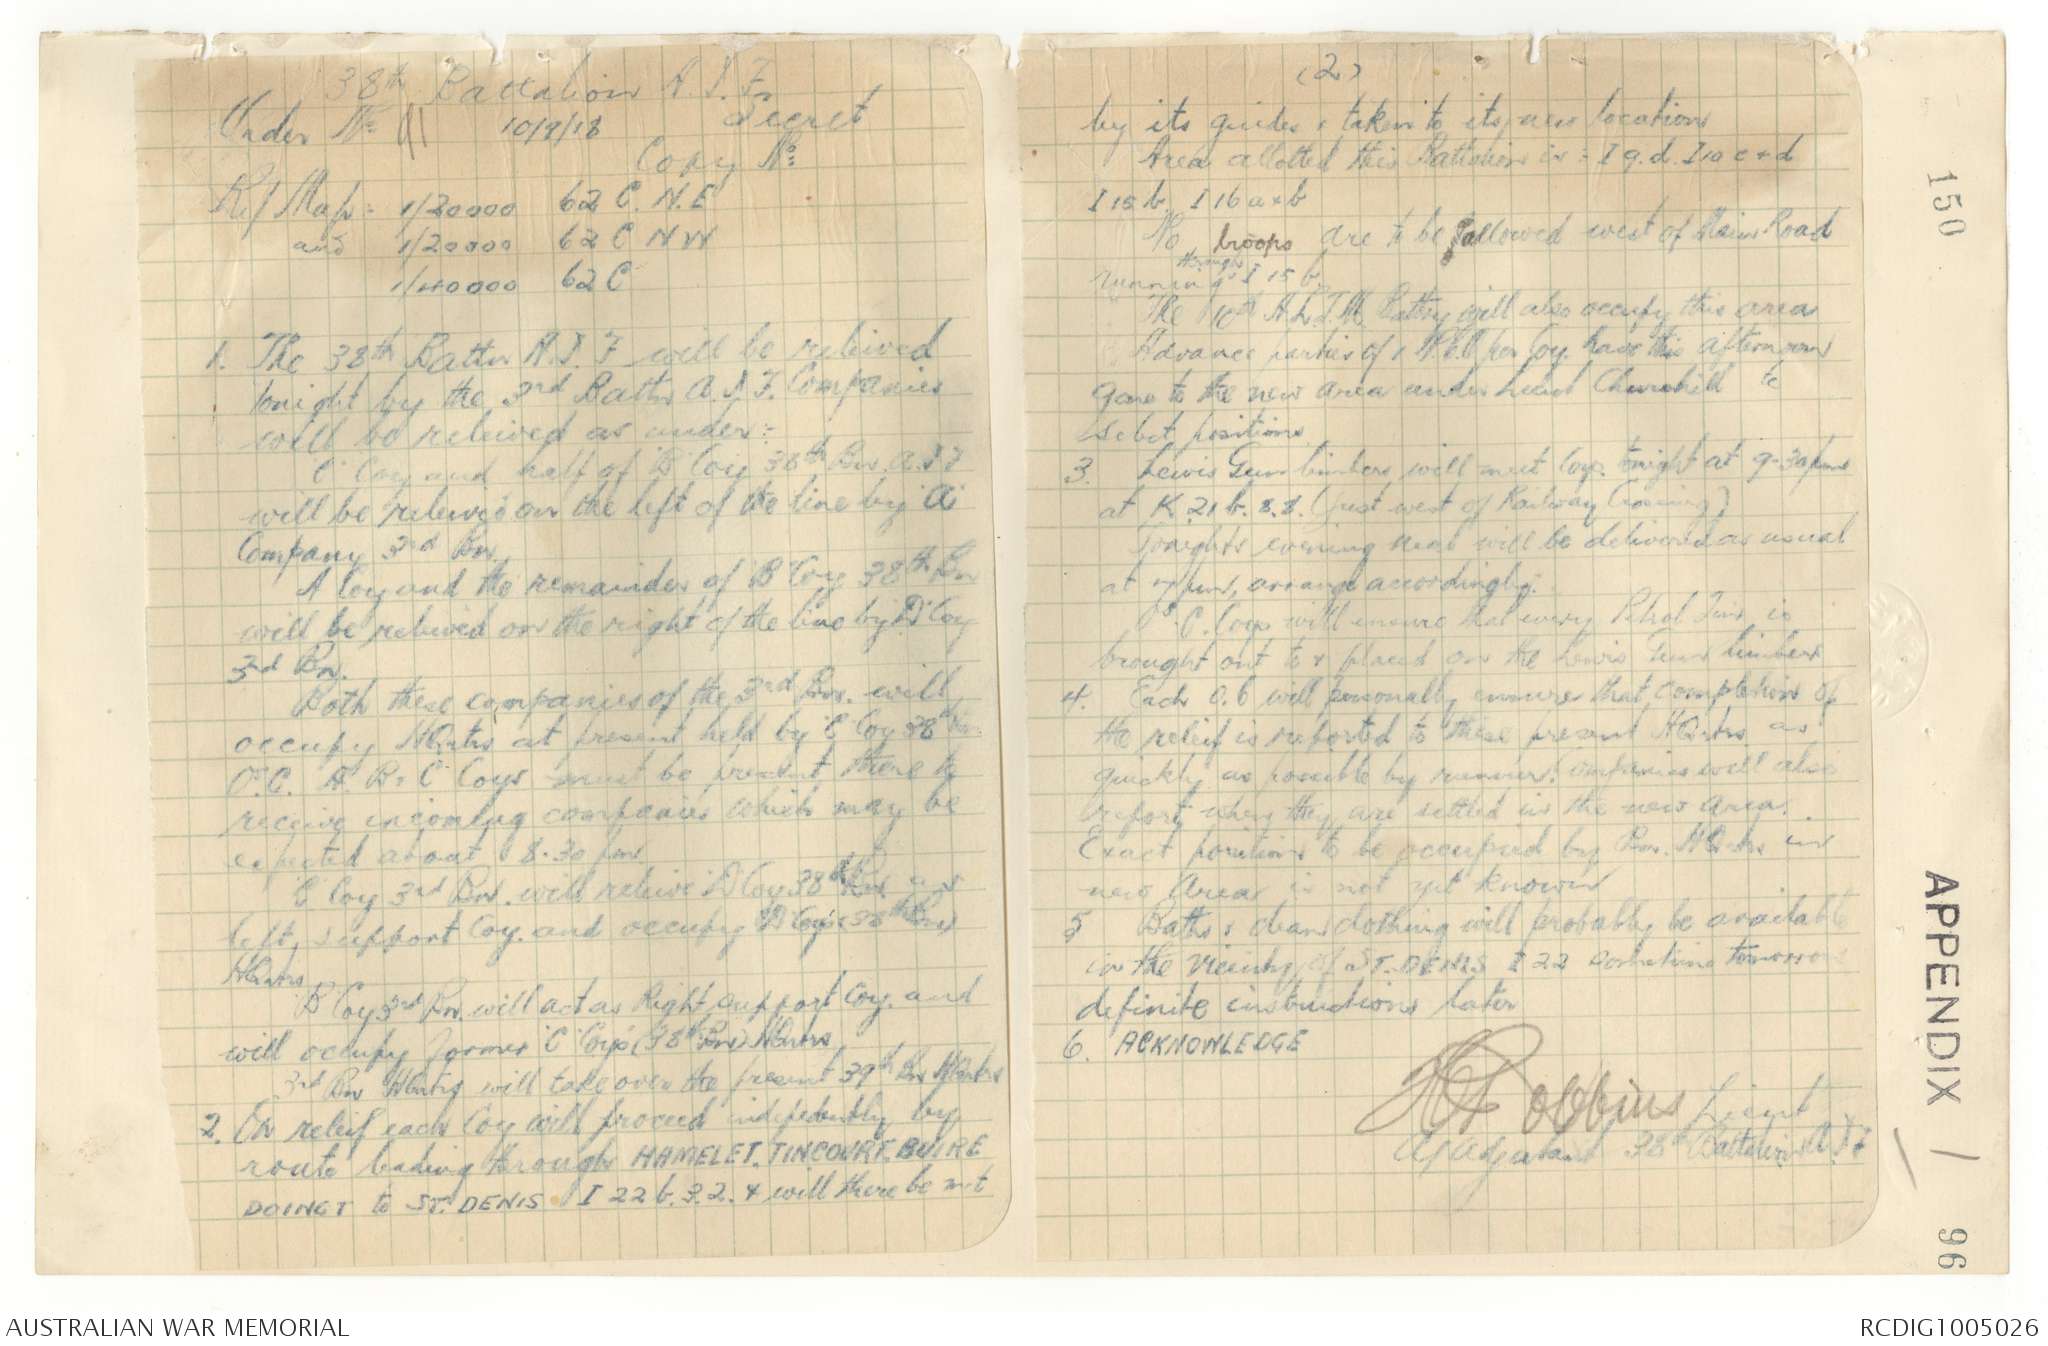 38th Battalion A.I.F.
Order No 91 10/9/18 Secret
Copy No
Ref Map:- 1/20000 62 C. N.E
and 1/20000 62 C N W
1/40000 62 C
1. The 38th Battn A.I.F will be releived
tonight by the 3rd Battn A.I.F. Companies
will be releived as under:-
'C' Coy and half of 'B' Coy 38th Bn. A.I.F
will be releived on the left of the line by 'A'
Company 3rd Bn
A Coy and the remainder of 'B' Coy 38th Bn
will be releived on the right of the line by 'D' Coy
3rd Bn.
Both these companies of the 3rd Bn. will
occupy HQrtrs at present held by 'C' Coy 38th Bn.
O.C. A. B. C Coys must be present there to
receive incoming companies which may be
expected about 8.30 pm
'C' Coy 3rd Bn. will releive 'D' Coy 38th Bn as
left support Coy. and occupy 'D' Coy's (38th Bn)
HQrtrs.
'B' Coy 3rd Bn. will act as Right support Coy. and
will occupy former 'C' Coy's (38th Bn) HQrtrs
3rd Bn HQrtrs will take over the present 39th Bn HQrtrs
2. On releif each Coy will proceed independently by
route leading through HAMELET. TINCOURT. BUIRE
DOINGT to ST. DENIS I 22 b. 3.2. & will there be met
(2)
by its guides & taken to its new location
Area allotted this Battalion is:- I 9.d. I 10 c & d
I 15 b. I 16 a & b
No troops are to be allowed west of Main Road
running through I 15 b.
The 10th A.L.T.M. Battery will also occupy this area
Advance parties of 1 N.C.O per Coy. have this afternoon
gone to the new area under Lieut Churchill to
select positions
3. Lewis Gun limbers will meet Coys. tonight at 9-30 pm
at K 21 b. 8.8. (just west of Railway Crossing)
Tonights evening meal will be delivered as usual
at 7 pm, arrange accordingly.
O's C. Coys will ensure that every Petrol Tin is
brought out to & placed on the Lewis Gun limbers
4. Each O.C will personally ensure that completion of
the releif is reported to these present HQrtrs as
quickly as possible by runner. Companies will also
report when they are settled in the new area.
Exact positions to be occupied by Bn. HQrtrs in
new Area is not yet known
5 Baths & clean clothing will probably be available
in the vicinity of ST. DENIS I 22 sometime tomorrow
definite instructions later
6. ACKNOWLEDGE
Robbins Lieut
A/Adjutant 38th Battalion A.I.F
150
APPENDIX /
96
AUSTRALIAN WAR MEMORIAL
RCDIG1005026